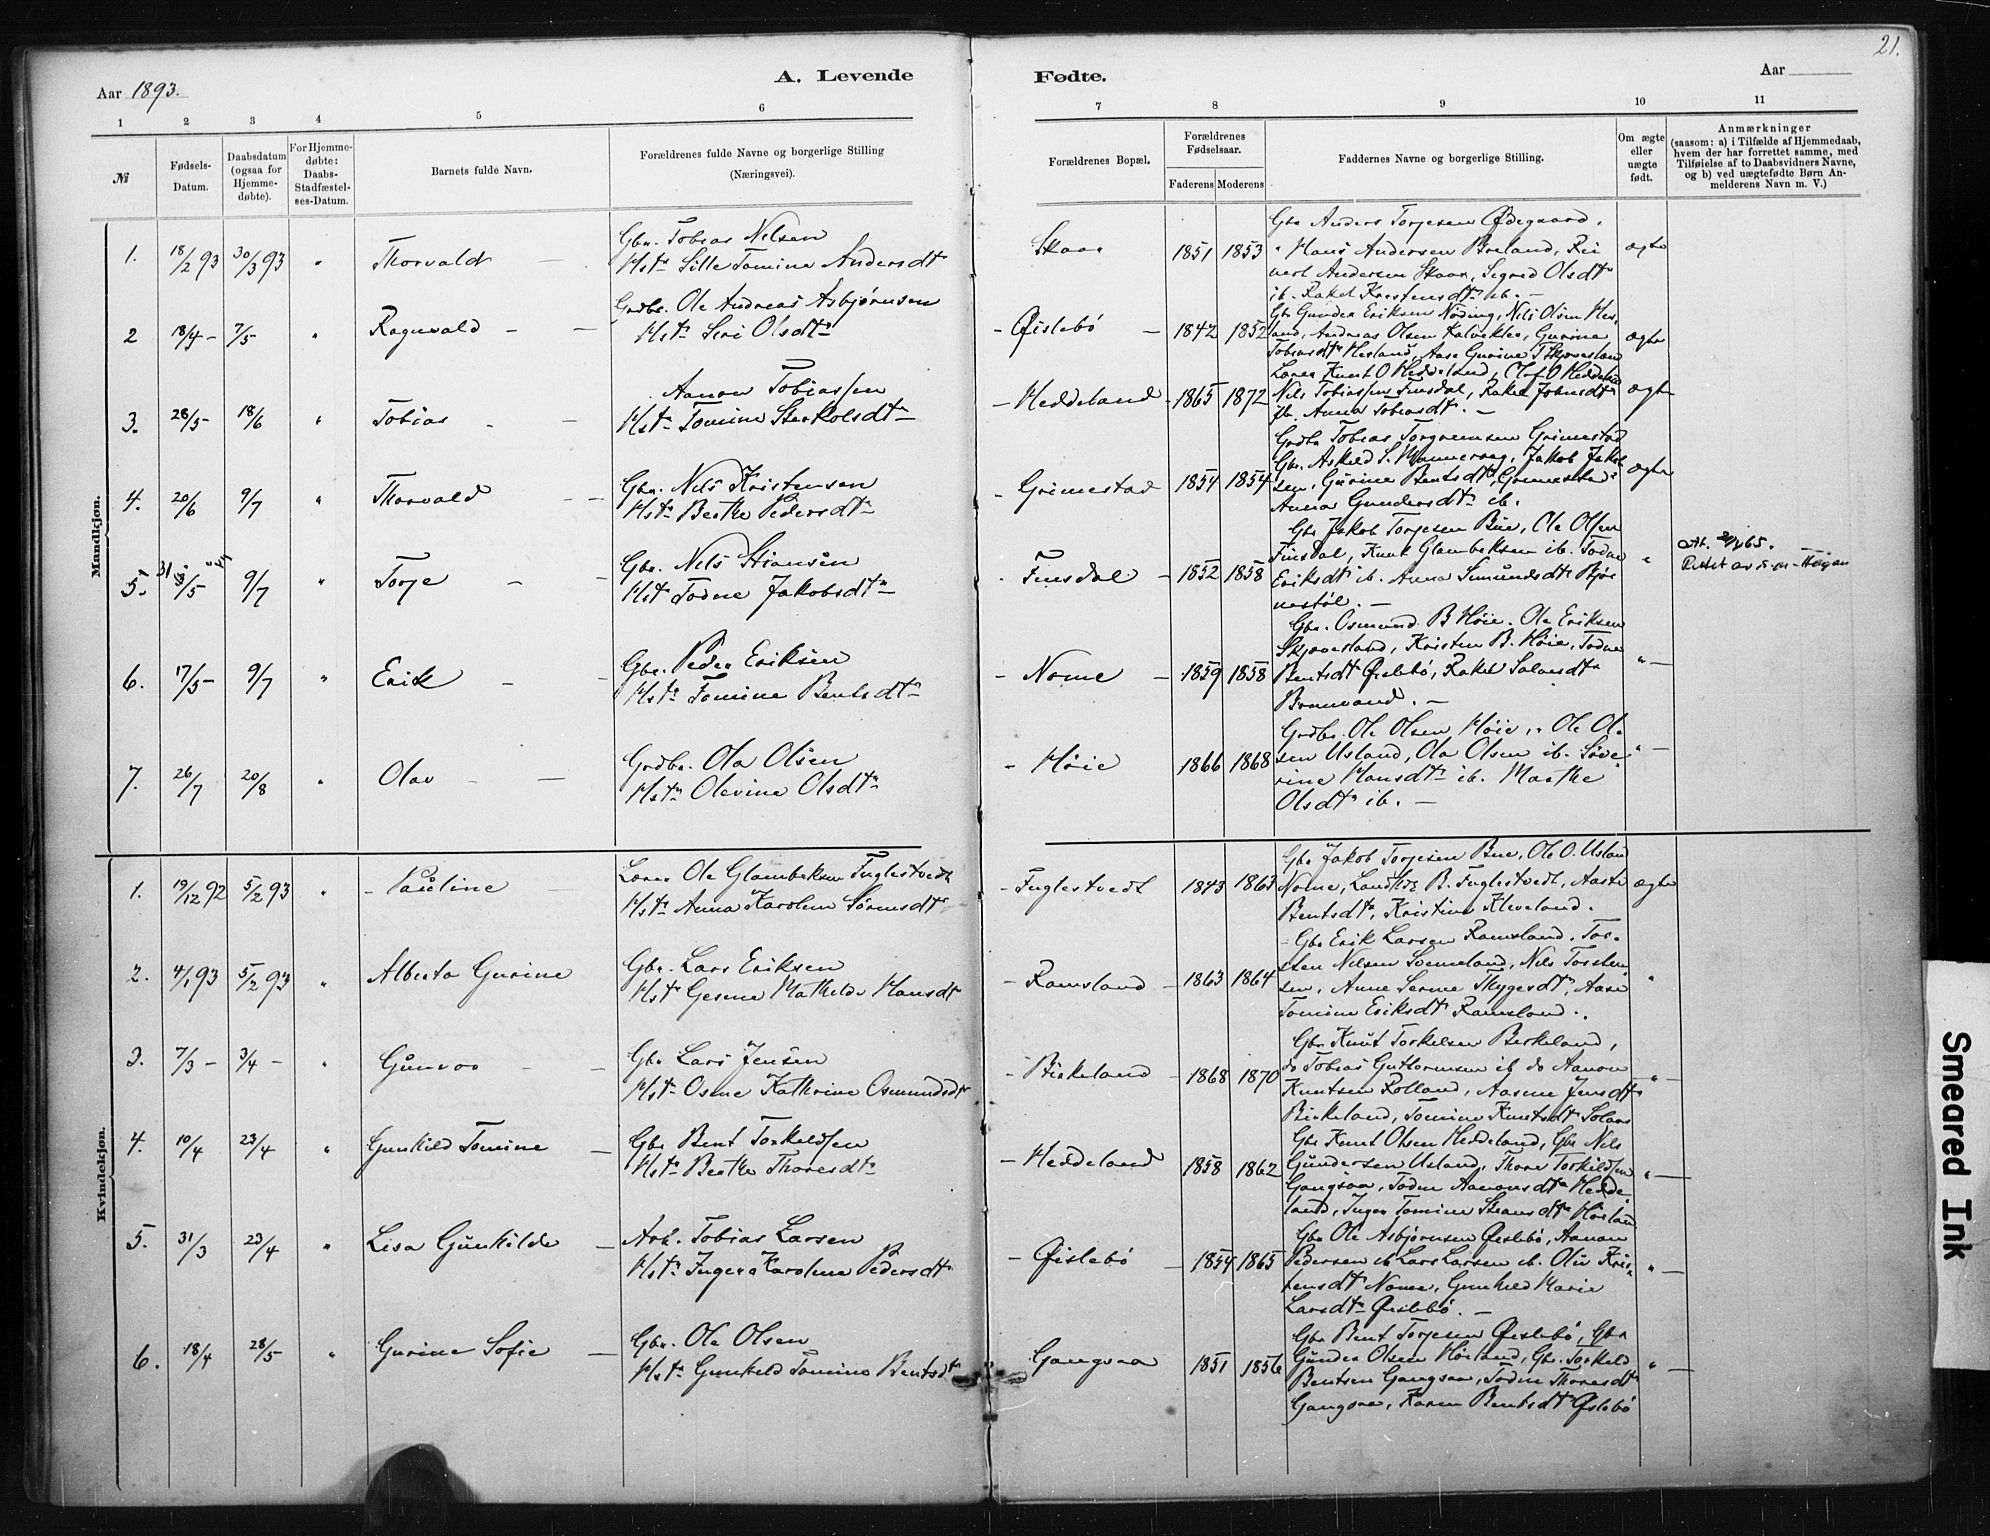 21.
A. Levende Fødte.
Aar 1893. Aar
1 2 3 4 5 6 7 8 9 10 11
№
Fødsels-Datum.
Daabsdatum (ogsaa for Hjemmedøbte).
For Hjemmedøbte: Daabs-Stadfæstelses-Datum.
Barnets fulde Navn.
Forældrenes fulde Navne og borgerlige Stilling (Næringsvei).
Forældrenes Bopæl.
Forældrenes Fødselsaar.
Faderens Moderens
Faddernes Navne og borgerlige Stilling.
Om ægte eller uægte født.
Anmærkninger
(saasom: a) i Tilfælde af Hjemmedaab,
hvem der har forrettet samme, med
Tilføielse af to Daabsvidners Navne,
og b) ved uægtefødte Børn An-
melderens Navn m. V.)
Mandkjøn.
1. 18/2 93 30/3 93 " Thorvald —
Gbr. Tobias Nilsen
Hst. Sille Tomine Andersdtr
Skaar 1851 1853
Gbr Anders Torjesen Ødegaard,
" Hans Andersen Breland, Rei
nert Andersen Skaar, Sigrid Olsdtr
ib. Rakel Kristensdtr ib. —
ægte
2 18/4 — 7/5 " Ragnvald — —
Grdbr. Ole Andreas Asbjørnsen
Hstr Siri Olsdtr
— Øislebø — 1842 1852
Gbr Gunder Eriksen Nöding, Nils Olsen Hes-
land, Andreas Olsen Kalvehei, Gurine
Tobiasdtr Hesland, Aase Gurine T Skjævesland
ægte
3. 28/5 — 18/6 " Tobias — —
Aanon Tobiassen
Hstr Tomine Sterkolsdtr
— Heddeland — 1865 1872
Lærer Knut O Heddeland, Olaf O Heddeland
Nils Tobiassen Finsdal, Rakel Johnsdtr
ib. Anna Tobiasdtr. —
ægte
4. 20/6 9/7 " Thorvald — —
Gbr. Nils Kristensen
Hstr Berthe Pedersdtr
— Grimestad 1854 1854
Grdbr Tobias Torgrimsen Grimestad
Gbr. Askild S. Mannevaag, Jakob Jakob
sen, Gurine Bentsdtr Grimestad
Anna Gundersdtr ib.
ægte
5. 31 3/5 9/7 " Torje — —
Gbr. Nils Stiansen
Hstr Todne Jakobsdtr
Finsdal — 1852 1858
Gbr Jakob Torjesen Bue, Ole Olsen
Finsdal, Knut Glambeksen ib. Todne
Eriksdtr ib. Anna Simundsdtr Bjør
nestøl. —
"
Rettet av s.m. Høgen
6. 17/5 — 9/7 " Erik — —
Gbr. Peder Eriksen
Hstr Tomine Bentsdtr
— Nome — 1859 1858
Gbr. Osmund B Høie. Ole Eriksen
Skjævesland, Kristen B. Høie, Todne
Bentsdtr Øislebø, Rakel Salvesdtr
" —
7. 26/7 20/8 " Olav — —
Grdbr. Ola Olsen
Hstr Olevine Olsdtr
— Høie 1866 1868
Grdbr. Ole Olsen Høie, " Ole Ol
sen Usland, Ola Olsen ib. Søve
rine Hansdtr ib. Marthe
Olsdtr ib. —
" —
Kvindekjøn.
1. 19/12 92 5/2 93 " — Pauline —
Lærer Ole Glambeksen Fuglestvedt
Hstr Anna Karoline Sørensdtr
— Fuglestvedt 1843 1863
Gbr Jakob Torjesen Bue, Ole O. Usland
Nome, Landhdl. B. Fuglestvedt, Aaste
Bentsdtr, Kristine Kleveland.
ægte
2. 4/1 93 5/2 93 " Alberta Gurine
Gbr. Lars Eriksen
Hstr Gesine Mathilde Hansdtr
— Ramsland — 1863 1864
— Gbr Erik Larsen Ramsland. Tor-
sten Nilsen Sveneland, Nils Torsten
sen, Anne Serine Thygesdtr, Aase
Tomine Eriksdtr Ramsland.
"
3. 7/3 — 3/4 — " Gunvor — —
Gbr Lars Jensen
Hstr Osine Kathrine Osmundsdtr
— Birkeland — 1868 1870
Gbr Knut Torkelsen Birkeland,
do Tobias Guttormsen ib do Aanon
Knutsen Rolland, Aasine Jensdtr
Birkeland, Tomine Knutsdtr Solaas
" —
4. 10/4 23/4 " Gunhild Tomine —
Gbr Bent Torkildsen
Hstr Berthe Thoresdtr
— Heddeland 1858 1862
Gbr Knut Olsen Heddeland, Gbr Nils
Gundersen Usland, Thore Torkildsen
Gangsaa, Todne Aanonsdtr Hedde-
land, Inger Tomine Steansdtr Høiland
" —
5. 31/3 23/4 " Lisa Gunhilde —
Arb. Tobias Larsen
Hstr Ingera Karoline Pedersdtr
— Øislebø — 1854 1865
Gbr Ole Asbjørnsen Øislebø, Aanon
Pedersen ib Lars Larsen ib. Oliv Kris
tensdtr Nome, Gunhild Marie
Larsdtr Øislebø. —
" —
6. 18/4 28/5 " Gurine Sofie —
Gbr. Ole Olsen
Hstr Gunhild Tomine Bentsdtr
— Gangsaa 1851 1856
Gbr Bent Torjesen Øislebø, Gbr
Gunder Olsen Høiland, Gbr. Torkild
Bentsen Gangsaa, Todne Thoresdtr
Gangsaa, Karen Bentsdtr Øislebø
" —
Smeared Ink